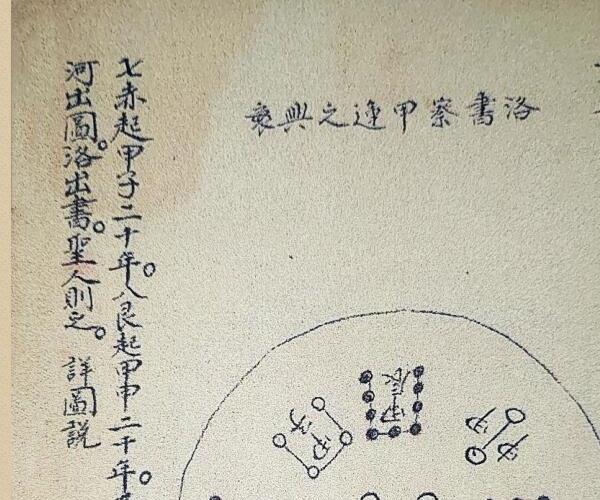 洛書察甲之興衰
七赤起甲子二十年。八艮起甲申二十年。
河出圖。洛出書。聖人則之。 詳圖說
甲辰
甲子